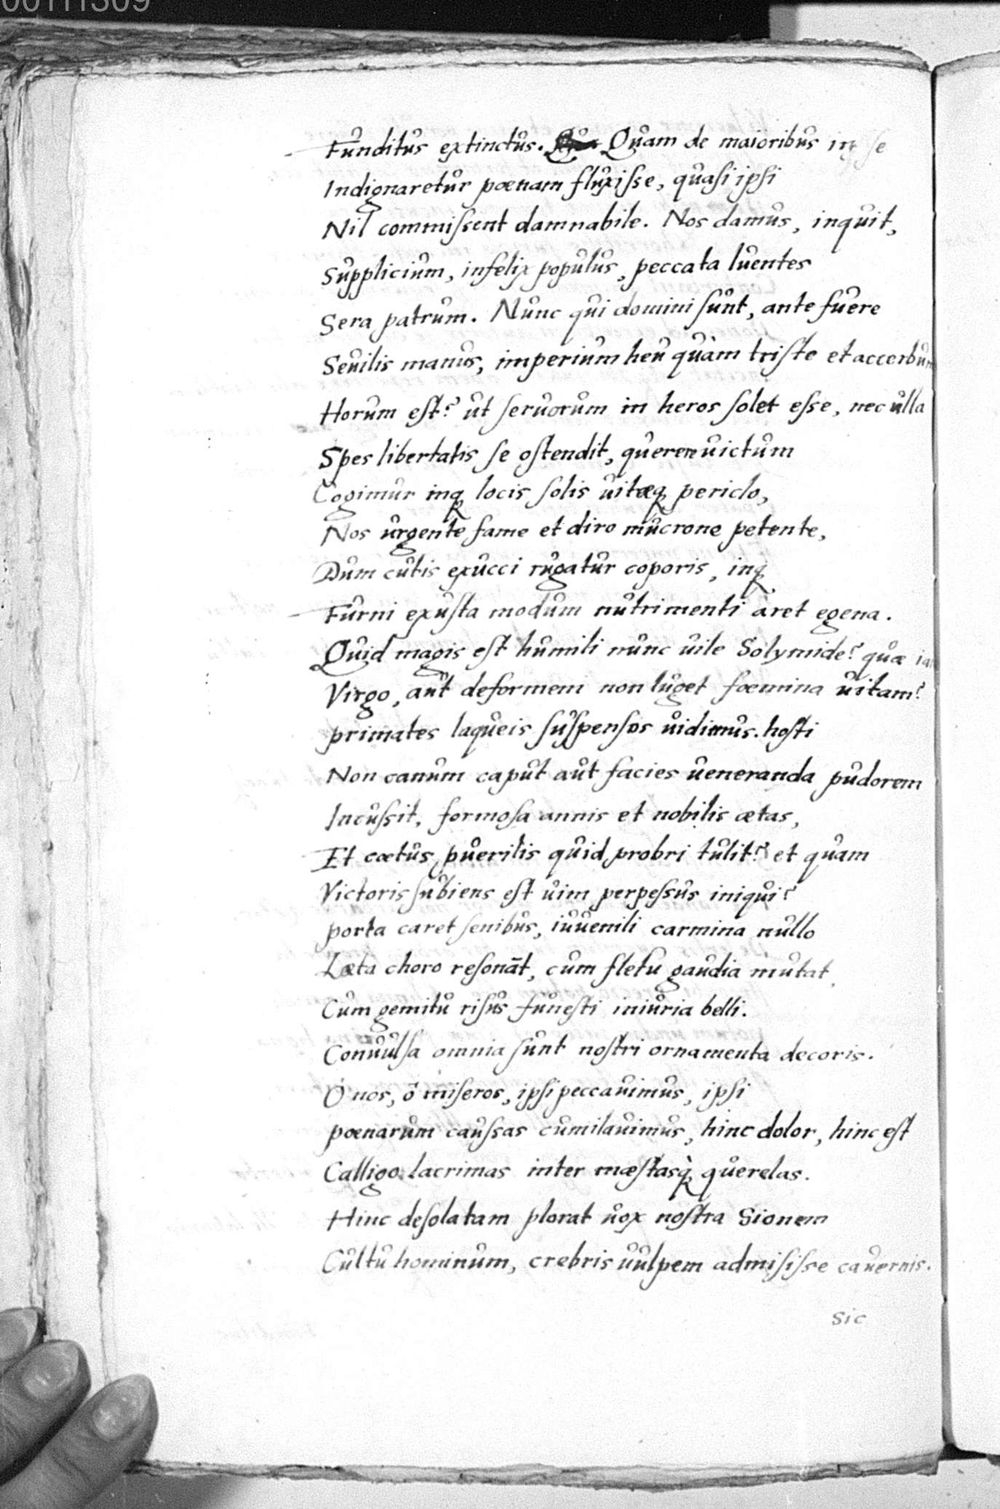 00111309
Funditus extinctus. Quam de maioribus in se
Indignaretur pœnam fluxisse, quasi ipsi
Nil commissent damnabile. Nos damus, inquit,
Supplicium, infelix populus, peccata luentes
Sera patrum. Nunc qui domini sunt, ante fuere
Seuilis manus, imperium heu quàm triste et accerbum
Horum est? ut seruorum in heros solet esse, nec ulla
Spes libertatis se ostendit, querere uictum
Cogimur inq locis solis uitæq periclo,
Nos urgente fame et diro mucrone petente,
Dum cutis exucci rugatur coporis, inq
Furni exusta modum nutrimenti aret egena.
Quid magis est humili nunc uile Solymide? quæ
Virgo, aut deformem non luget foemina uitam?
primates laqueis suspensos uidimus. hosti
Non canum caput aut facies ueneranda pudorem
Incussit, formosa annis et nobilis ætas,
Et cœtus puerilis quid probri tulit? et quam
Victoris subiens est uim perpessus iniqui?
porta caret senibus, iuuenili carmina nullo
Læta choro resonāt, cum fletu gaudia mutat,
Cum gemitu risus funesti iniuria belli.
Conuulsa omnia sunt nostri ornamenta decoris.
O nos, ô miseros, ipsi peccauimus, ipsi
pœnarum caussas cumilauimus, hinc dolor, hinc est
Calligo lacrimas inter mæstasq querelas.
Hinc desolatam plorat uox nostra Sionem
Cultu hominum, crebris uulpem admisisse cauernis.
Sic